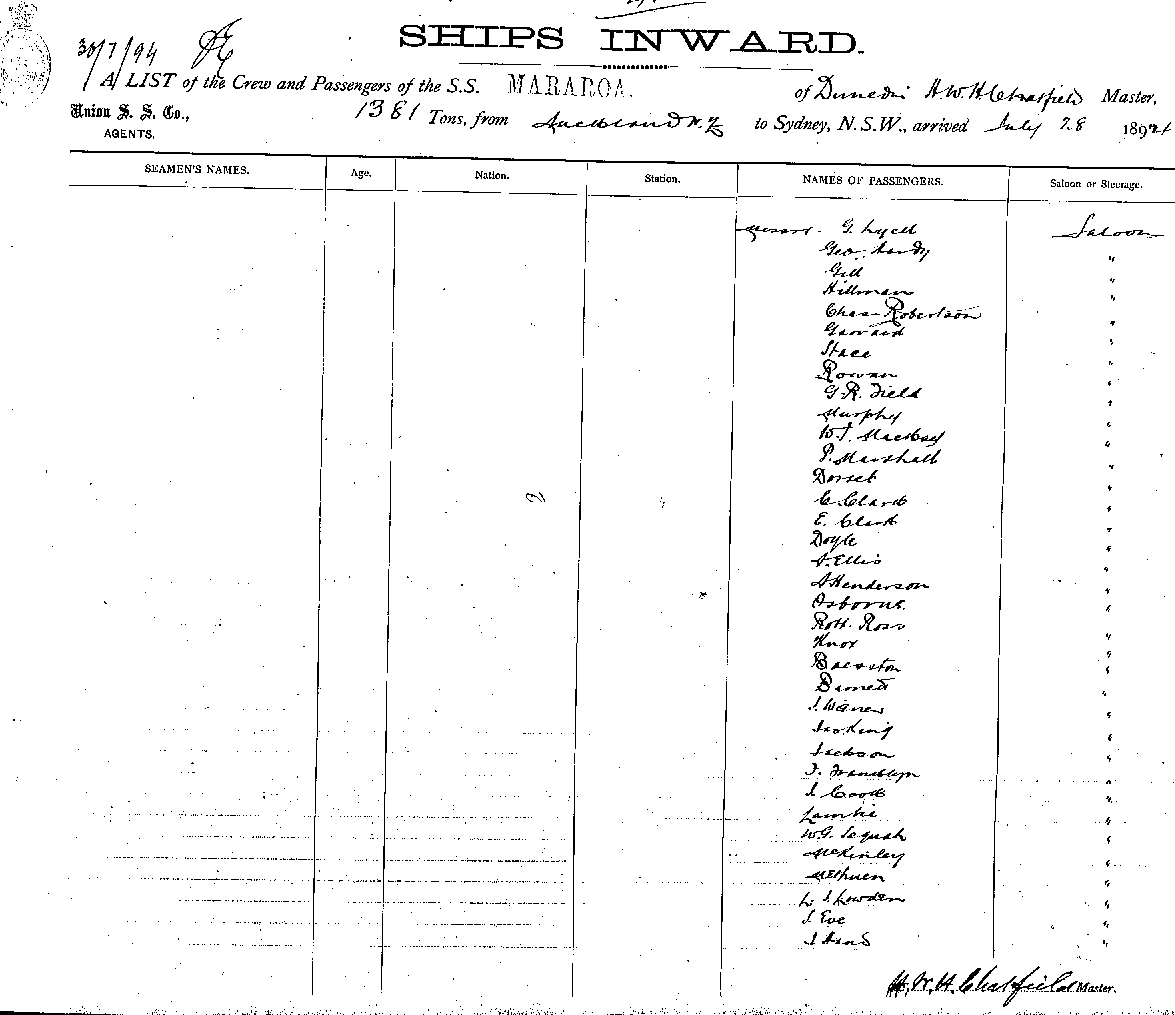 SHIPS INWARD.
30/7/94
A LIST of the Crew and Passengers of the S.S. MARAROA. of Dunedin H.W.H.Chatfield Master,
Union S. S. Co., 1381 Tons, from Auckland N.Z to Sydney, N.S.W., arrived July 28 1894
AGENTS.
SEAMEN'S NAMES. Age. Nation. Station. NAMES OF PASSENGERS. Saloon or Steerage.
Messrs. G. Lyell Saloon
Geo. Hardy "
Gill "
Hillman "
Chas Robertson "
Garrard "
Stace "
Rowan "
G.R. Field "
Murphy "
W.J. "
P. Marshall "
Dorset "
C. Clark "
E. Clark "
Doyle "
A. Ellis "
A Henderson "
Osborne. "
Robt. Ross "
Knox "
"
"
J. "
"
Jackson "
F. Franklyn "
J. Cook "
"
W.G. "
McKinley "
Methven "
L J. Lowden "
J. Eve "
J Hand "
H.W.H.Chatfield Master.